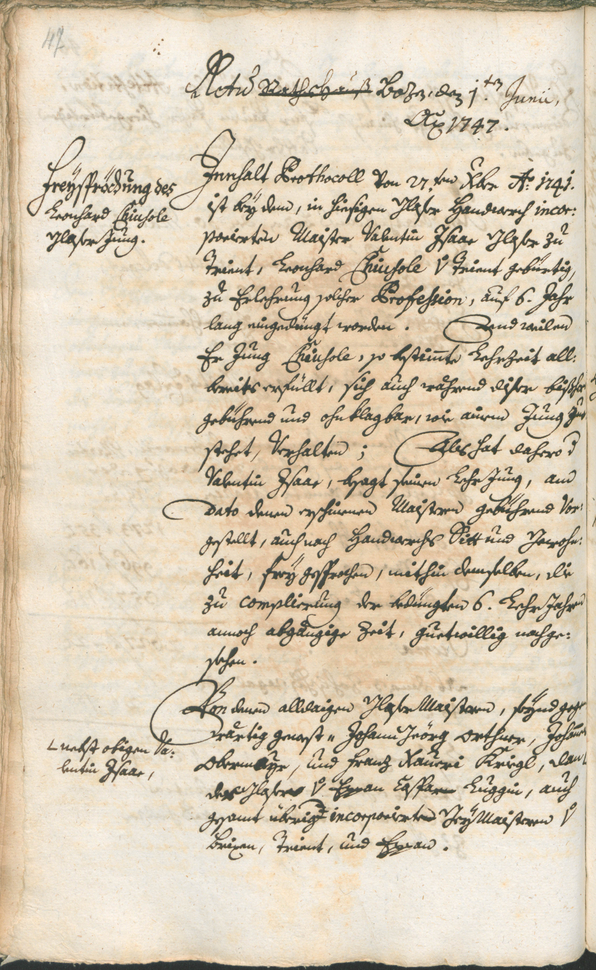 47
Actũ Rathshauß Bozen, den 1.ten Junii,
Aõ 1747.
Freÿsprechung des
Leonhard Chiusole
Glaser Jung.
Innhalt Prothocoll von 27.ten Xber Aõ: 1741.
ist beÿ dem, in hiesigen Glaser Handwerch incor:
porierten Maister Valentin Isaac Glaser zu
Trient, Leonhard Chiusole v Trient gebürtig,
zu Erlehrnung solcher Profession, auf 6. Jahr
lang eingedingt worden. Und weilen
Er Jung Chiusole, so bestimte Lehrzeit all:
bereits erfüllt, sich auch während diser bishero
gebührend und ohnklagbar, wie einem Jung zue
stehet, verhalten; Als hat dahero
Valentin Isaac, besagt seinen Lehr Jung, am
Dato denen erschinenen Maistern gebührend vor:
gestellt, auch nach Handwerchs Sitt und Gewohn:
heit, freÿ gesprochen, mithin demselben, die
zu complierung der bedingten 6. Lehr Jahre
annoch abgängige Zeit, guetwillig nachge:
sehen.
Von denen alldaigen Glaser Maistern, seÿnd gegen
wärtig gewest Johann Geörg Orthner, Johann
nebst obigen Va:
lentin Isaac,
Obermaÿr, und Franz Xaveri Kriegl, dan
der Glaser v Eppan Casspar Luggin, auch
gesamt übrige incorporierten Freÿ Maistern v
Brixen, Trient, und Eppan.